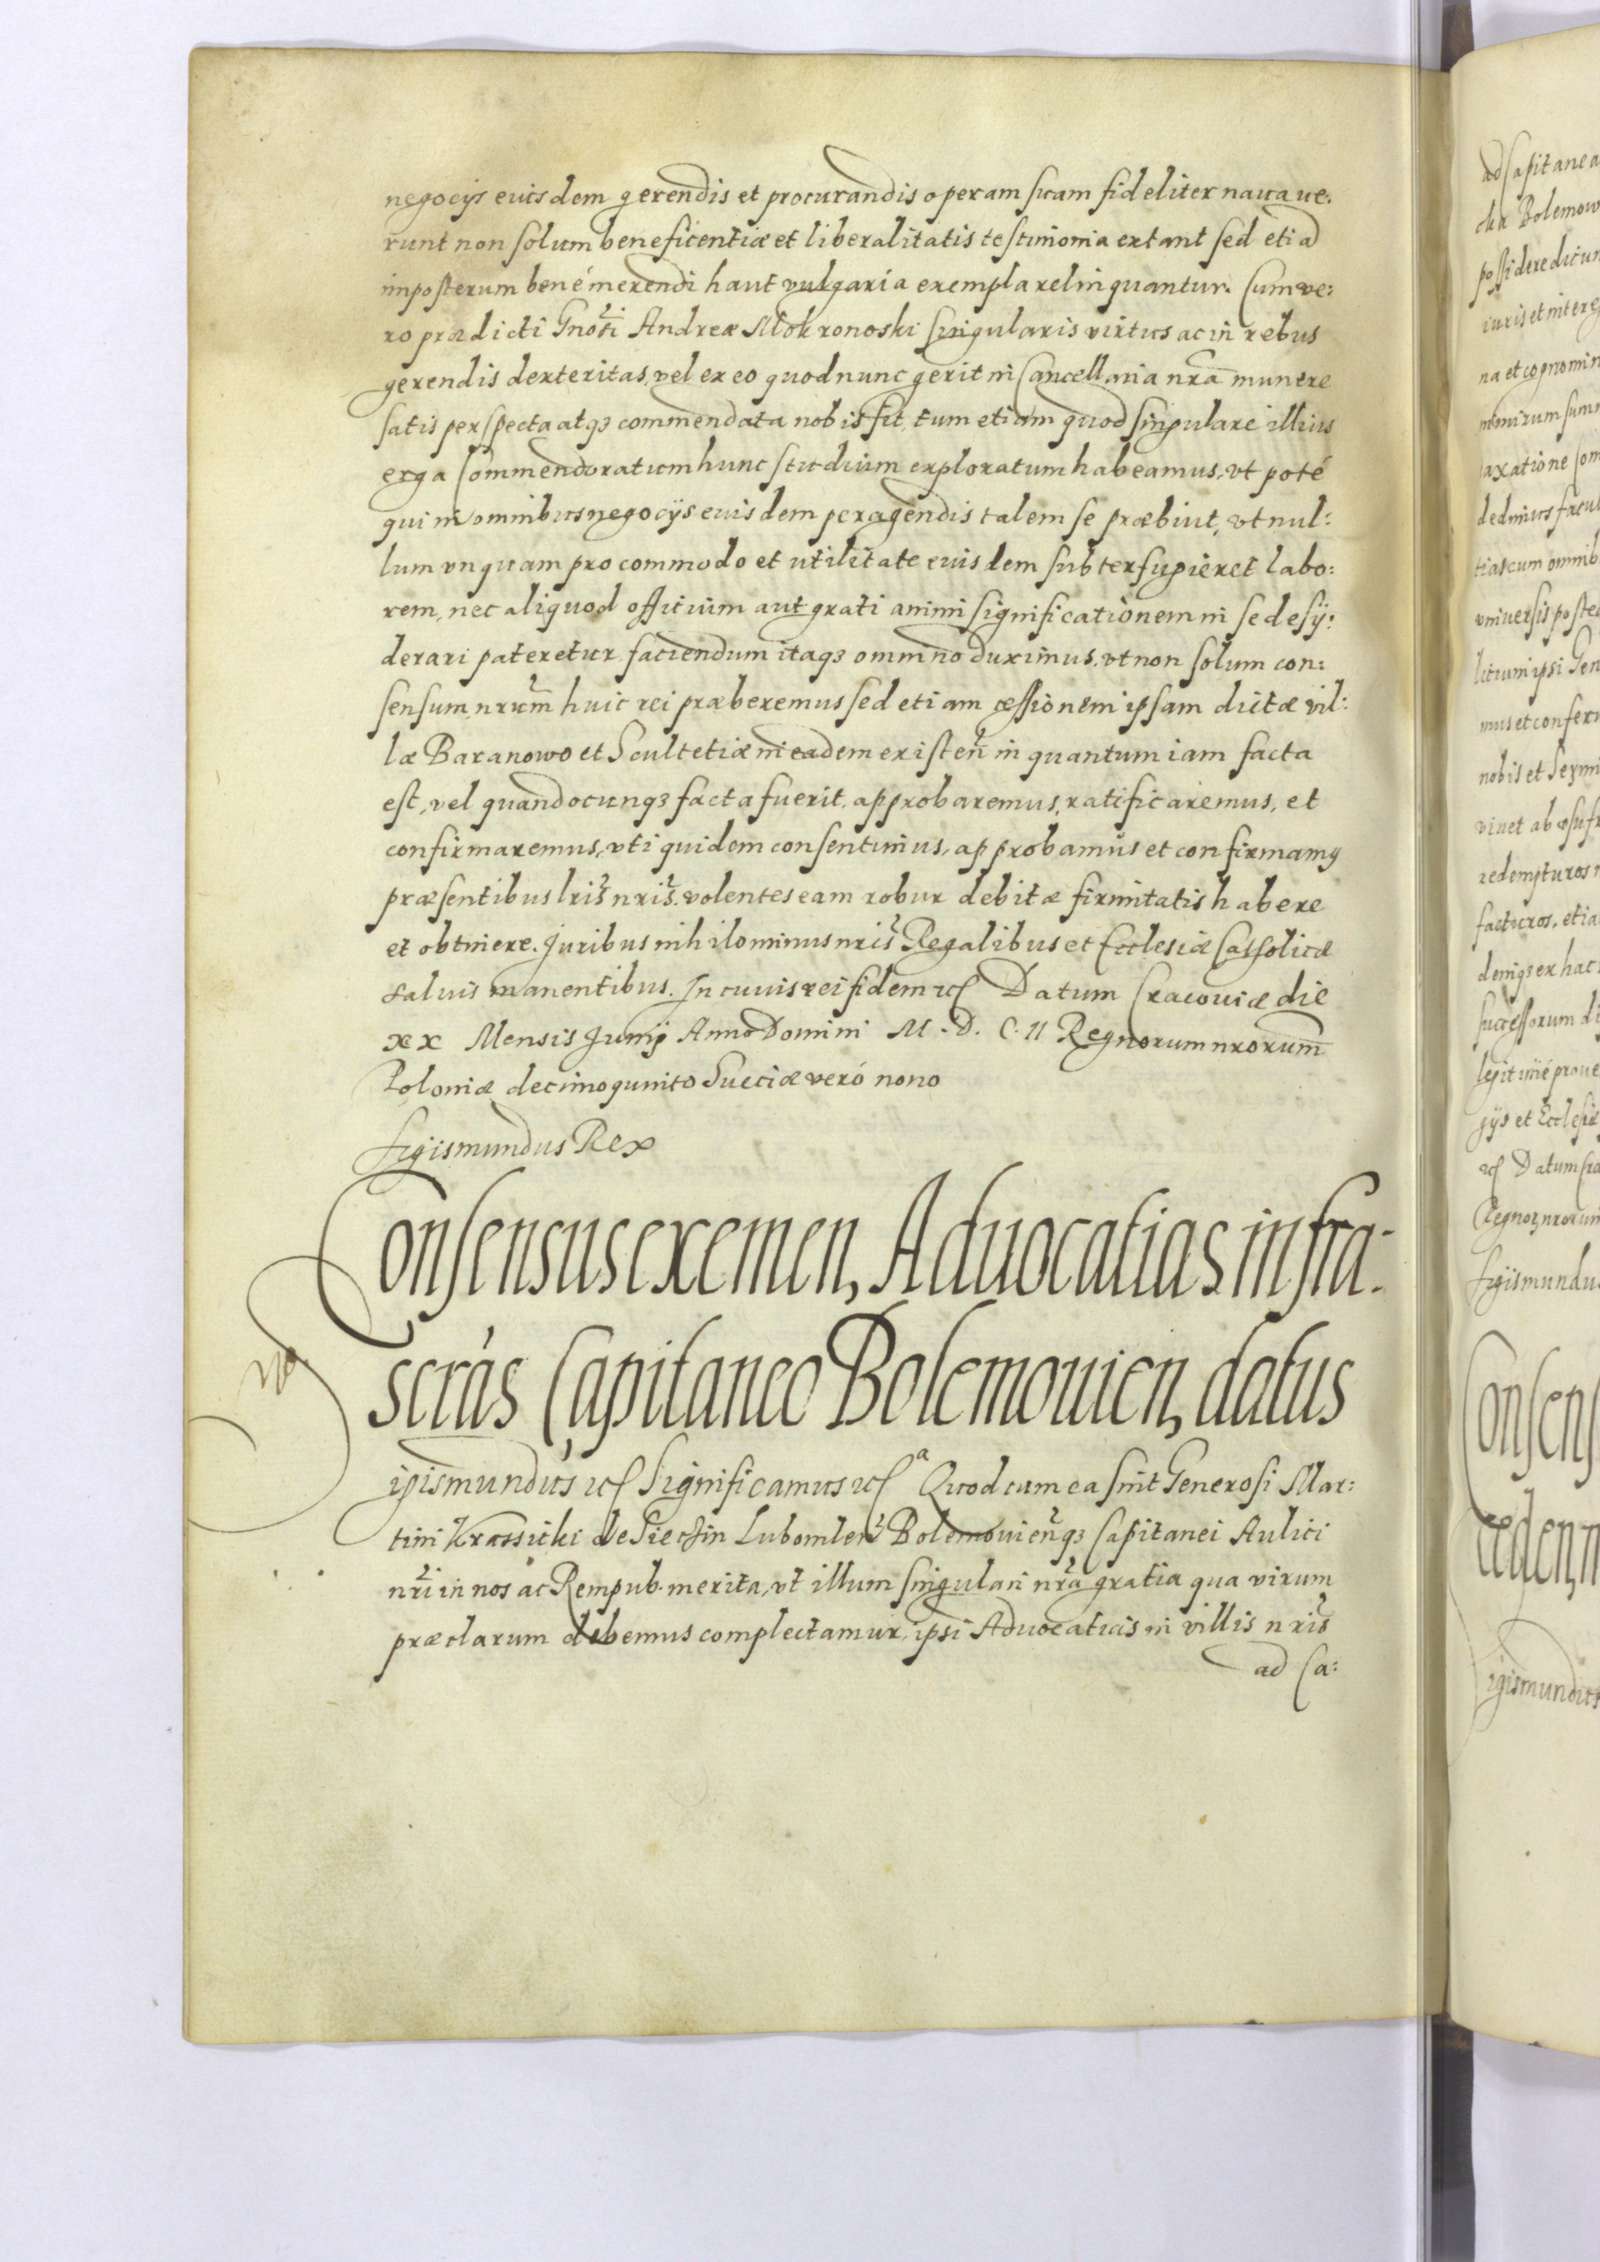 negocijs euisdem gerendis et procurandis operam suam fideliter nauaue:
runt non solum beneficentiæ et liberalitatis testimonia extant sed etiā
imposterum bené merendi haut vulgaria exempla relinquantur. Cum ve:
ro prædicti Gnōsi Andreæ Mokronoski singularis virtus ac in rebus
gerendis dexteritas, vel ex eo quod nunc gerit in Cancellaria nrā munere
satis perspecta atqꝫ commendata nobis sit, tum etiam quod singulare illius
erga Commendoratum hunc studium exploratum habeamus, vt poté
qui in omnibus negocijs euisdem peragendis talem se præbiut, vt nul:
lum vnquam pro commodo et utilitate euisdem subterfugieret labo:
rem, nec aliquod officium aut grati animi significationem in se desÿ:
derari pateretur faciendum itaqꝫ omnino duximus, vt non solum con:
sensum nrum̄ huic rei præberemus sed etiam cessionem ipsam dictæ vil:
læ Baranowo et Scultetiæ in eadem existeñ in quantum iam facta
est, vel quandocunqꝫ facta fuerit, approbaremus, ratificaremus, et
confirmaremus, vti quidem consentimus, approbamus et confirmamꝰ
præsentibus lris̄ nris̄. volentes eam robur debitæ firmitatis habere
et obtinere. Juribus nihilominus nris̄ Regalibus et Ecclesiæ Catholicæ
saluis manentibus. In cuuis rei fidem etc Datum Cracouiæ die
xx Mensis Junij Anno Domini M. D. C. II Regnorum nrorum̄
Poloniæ decimoquinto Sueciæ veró nono
Sigismundus Rex
Consensus exemen, Aduocatias infra:
scrás Capitaneo Bolemouien, datus
igismundus etc Significamus etc ͣ Quod cum ea sint Generosi Mar:
tini Krassicki de Siechin Lubomleñ Bolemouieñqꝫ Capitanei Aulici
nri̅ in nos ac Rempub. merita, vt illum singulari nrā gratia qua virum
præclarum debemus complectamur, ipsi Aduocatiis in villis nris̄
ad Ca: